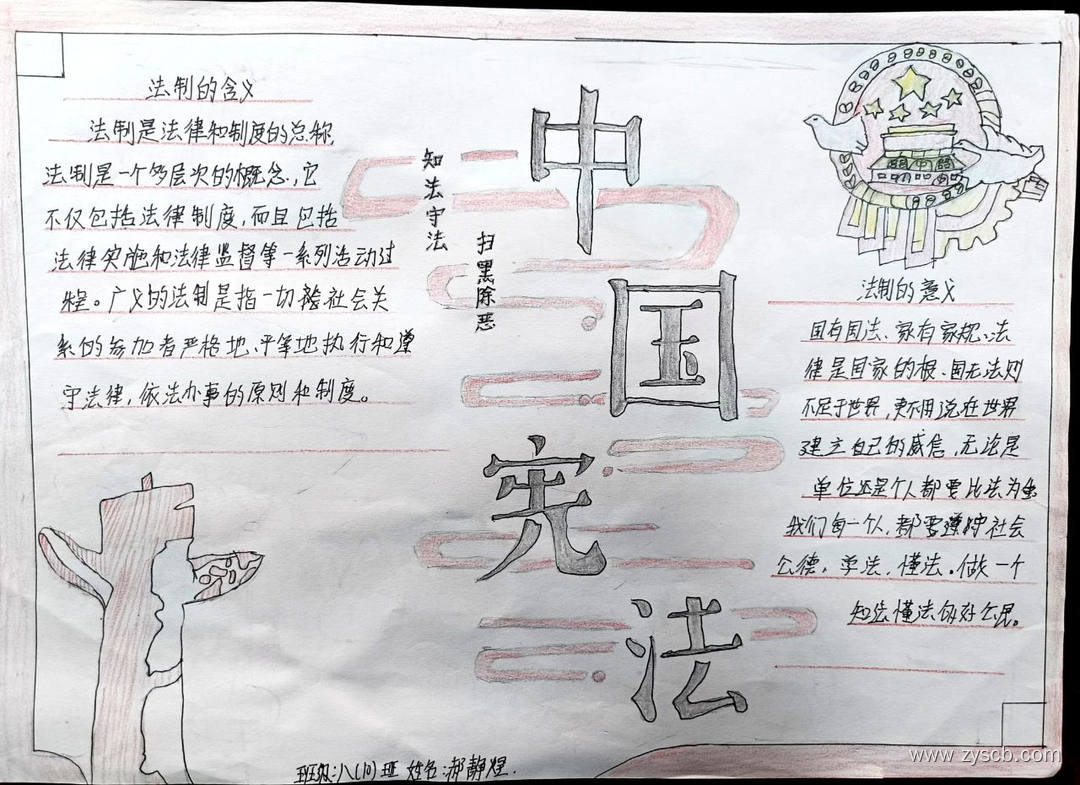 法制的含义
法制是法律和制度的总称,
法制是一个多层次的概念,它
不仅包括法律制度,而且包括
法律实施和法律监督等一系列活动过
程。广义的法制是指一切社会关
系的参加者严格地、平等地执行和遵
守法律,依法办事的原则和制度。
知法守法
扫黑除恶
中国宪法
法制的意义
国有国法、家有家规、法
律是国家的根、国无法则
不足于世界,更不用说在世界
建立自己的威信,无论是
单位还是个人都要以法为
我们每一个人,都要遵守社会
公德,学法,懂法。做一个
知法懂法的好公民。
班级:八(10)班 姓名:郝静煜.
www.zyscb.com